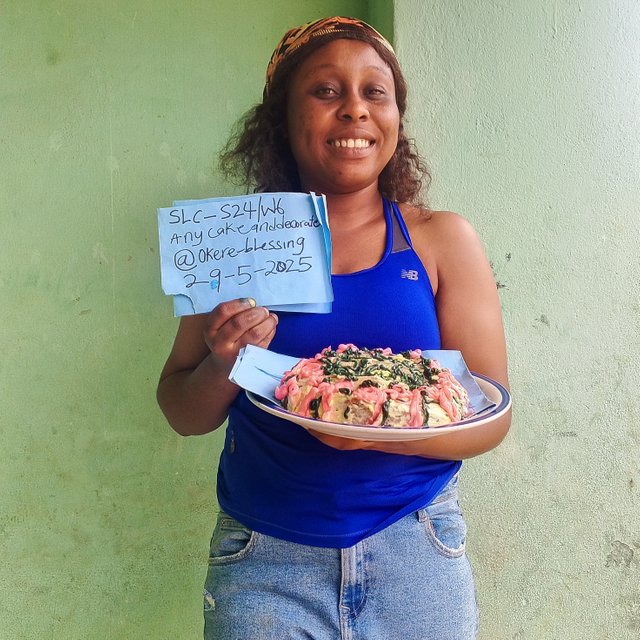 SLC-S24/W6
Any cake and decorate
@Okere-blessing
29-5-2025
NB